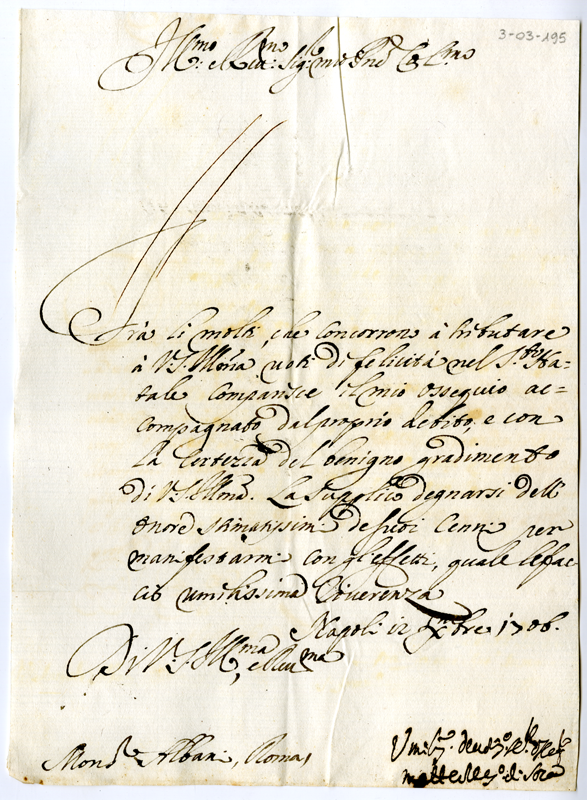 3-03-195
Ill.mo e R.mo Sig.re mio
Frà li molti, che concorrono à tributare
à V.S. Ill.ma voti di felicità nel S.to Na=
tale comparisce il mio ossequio ac=
compagnato dal proprio debito, e con
la certezza del benigno gradimento
di V.S. Ill.ma. La supplico degnarsi dell'
onore stimatissimo de suoi cenni per
manifestarmi con gl'effetti, quale le fac=
cio umilissima riverenza
Napoli 12 Xbre 1706.
Di V.S. Ill.ma e R.ma
Mons.r Albani, Roma